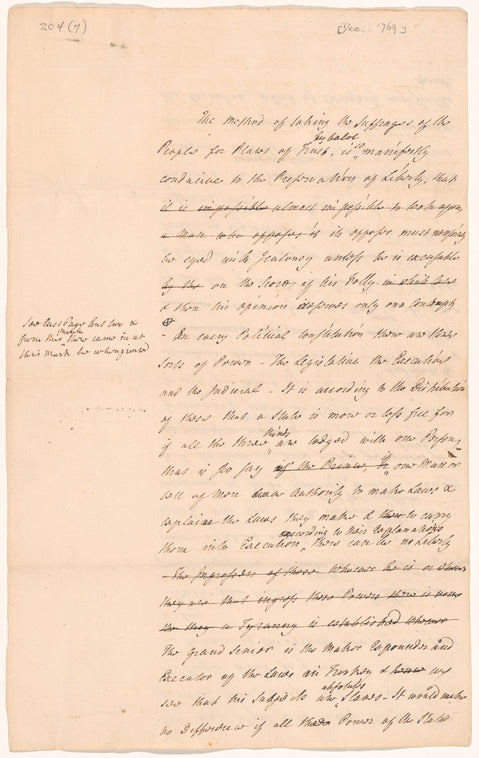 204 (7)
[Dec. 1769]
The method of taking the Suffrages of the
by balot
People for Places of Trust, is so manifestly
conducive to the Preservation of Liberty, that
it is impossible almost impossible to look upon
a Man who opposes is its opposer must
be eyed with Jealousy unless he is excusable
by the on the Score of his Folly in which case
& then his opinion deserves only our Contempt
In every Political constitution there are three
Sorts of Power - The Legislative the Executive
and the Judicial - It is according to the Distribution
of these that a State is more or less free for
kinds
if all the three are lodged with one Person
that is to say if the Prince one Man or
sett of Men have Authority to make Laws &
explain the Laws they make & to carry
according to their Explanations
them into Execution, there can be no Liberty
The Impossess of these Whoever he is or whoever
they are that ingross these Powers there is none
a Tyranny is established
The Grand Senior is the Maker Expounder and
Executor of the Laws in Turkey & hence we
absolute
see that his Subjects are Slaves - It would make
no Difference if all the Power of the State
See last Page but two &
mark
from this
this Mark be when printed